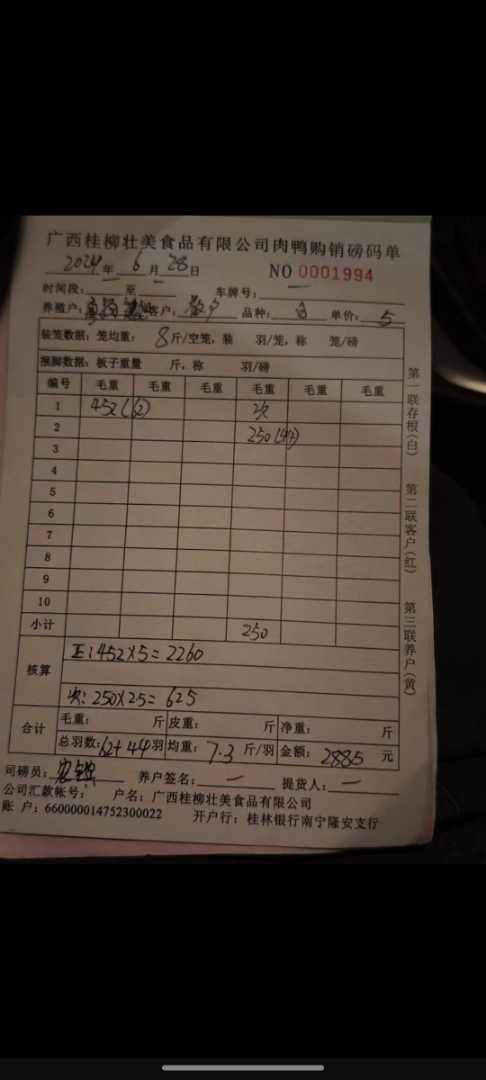 广西桂柳壮美食品有限公司肉鸭购销磅码单
2024年 6月 28日 NO 0001994
时间段: 一 至 一 车牌号: 一
养殖户: 客户: 散户 品种: 白 单价: 5
装笼数据: 笼均重: 8 斤/空笼, 装 羽/笼, 称 笼/磅
猴脚数据: 板子重量 斤, 称 羽/磅
编号 毛重 毛重 毛重 毛重 毛重 毛重
1 452(62) 次
2 250(44)
3
4
5
6
7
8
9
10
小计 250
核算 正: 452×5=2260
次: 250×2.5=625
合计 毛重: 斤 皮重: 斤 净重: 斤
总羽数: 62+44 羽 均重: 7.3 斤/羽 金额: 2885 元
司磅员: 养户签名: 一 提货人: 一
公司汇款帐号: 户名: 广西桂柳壮美食品有限公司
账 户: 660000014752300022 开户行: 桂林银行南宁隆安支行
第一联存根(白) 第二联客户(红) 第三联养户(黄)